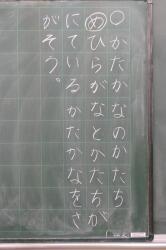 ○かたかなのかたち
めひらがなとかたちが
にているかたかなをさ
がそう。